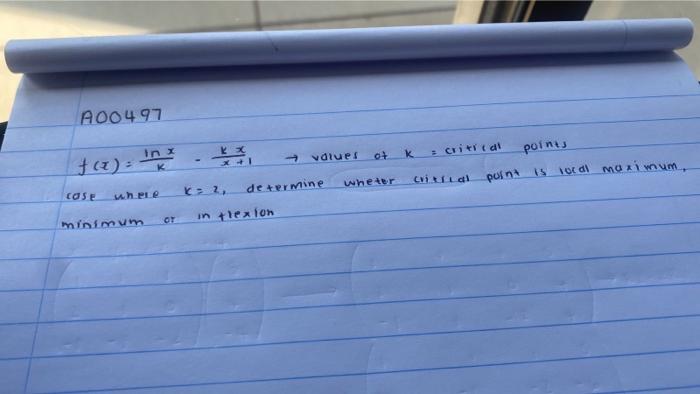 A00497
f(x) = ln x / k - kx / x+1 → values of k = critical points
case where k = 2, determine wheter critical point is local maximum,
minimum or inflexion